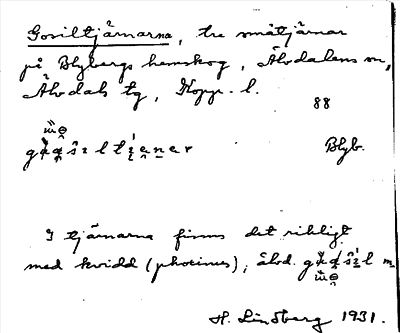 Gosiltjärnarna, tre småtjärnar
på Blybergs hemskog, Älvdalens sn,
Älvdals tg, Kopp. l.
88
Blyb.
I tjärnarna finns det rikligt
med kvidd (phoxinus), älvd.
H. Lindberg 1931.